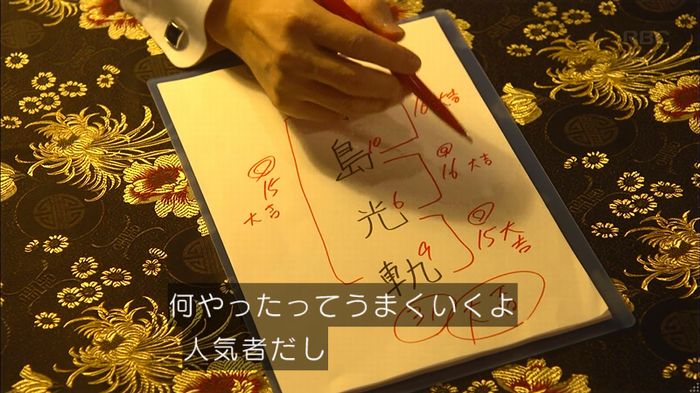 RBC
16大吉
島 10
16 大吉
15
大吉
光 6
15大吉
軌 9
何やったってうまくいくよ
人気者だし